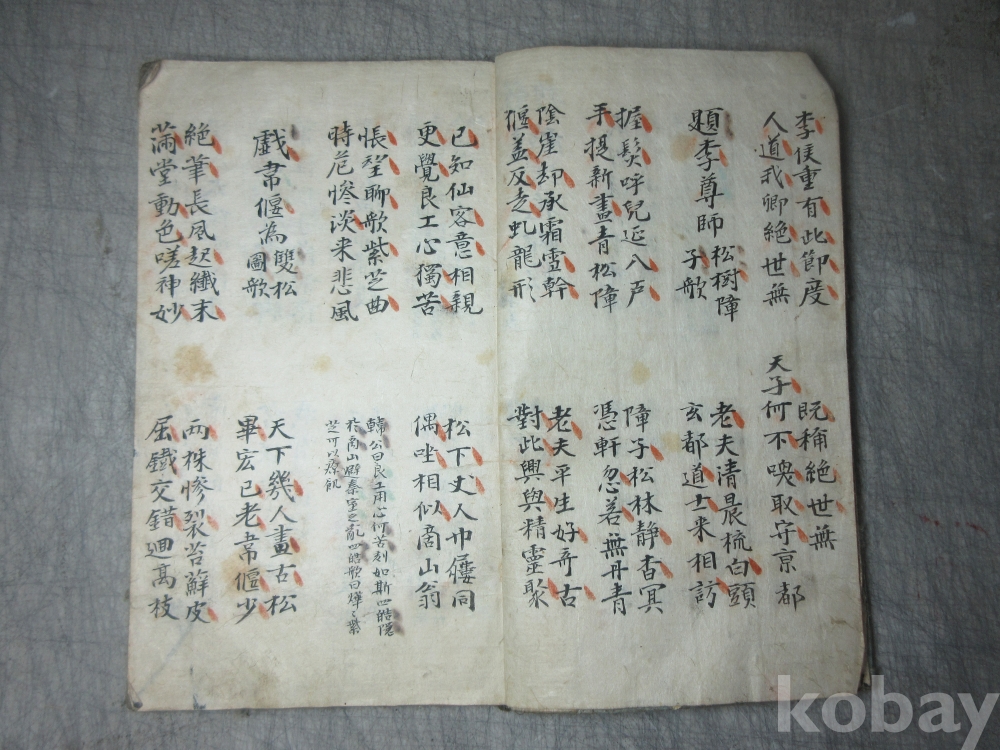 李侯重有此節度
人道我卿絶世無
既稱絶世無
天子何不喚取守京都
題李尊師
松樹障
子歌
老夫清晨梳白頭
玄都道士来相訪
握髮呼兒延入戶
手提新畫青松障
障子松林静杳冥
憑軒忽若無丹青
陰崖却承霜雪幹
偃盖反走虬龍形
老夫平生好奇古
對此興與精靈聚
已知仙客意相親
更覺良工心獨苦
松下丈人巾屨同
偶坐相似商山翁
悵望聊歌紫芝曲
時危惨淡来悲風
公曰良工用心何苦刻如斯四皓隱
於商山避秦室之亂四皓歌曰曄々紫
芝可以療飢
戲韋偃為
雙松
圖歌
天下幾人畫古松
畢宏已老韋偃少
絶筆長風起纖末
滿堂動色嗟神妙
兩株惨裂苔蘚皮
屈鐵交錯廻髙枝
kobay